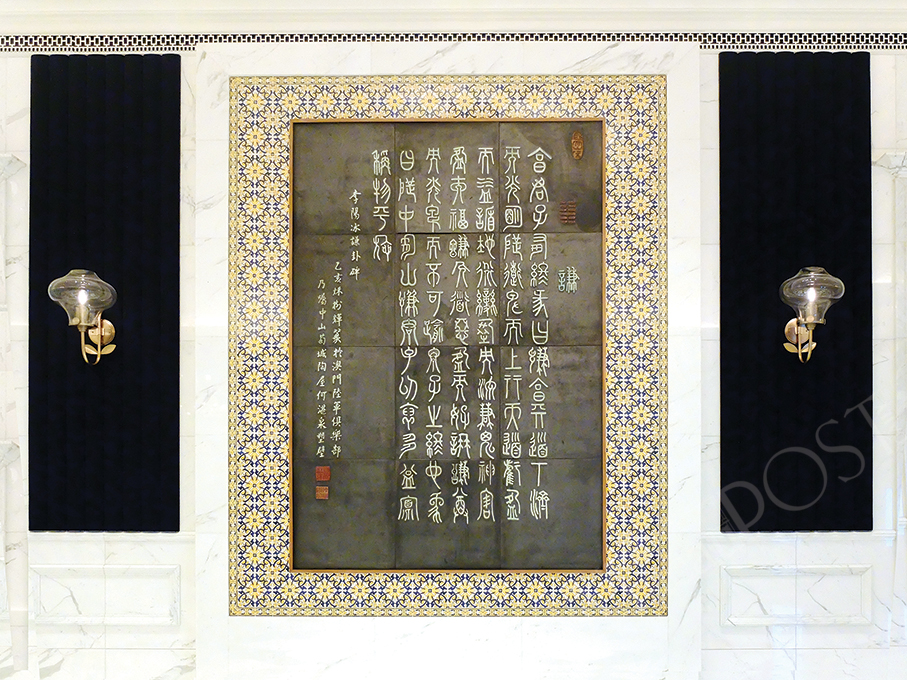 謙
亨君子有終彖曰謙亨天道下濟
而光明地道卑而上行天道虧盈
而益謙地道變盈而流謙鬼神害
盈而福謙人道惡盈而好謙謙尊
而光卑而不可踰君子之終也象
曰地中有山謙君子以裒多益寡
稱物平施
李陽冰謙卦碑
於澳門陸軍俱樂部
中山菊城陶屋何湛泉塑壁
POST